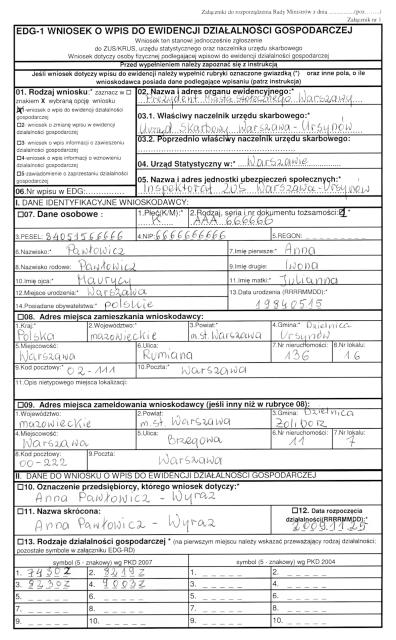 Załączniki do rozporządzenia Rady Ministrów z dnia ............/poz......./
Załącznik nr 1
EDG-1 WNIOSEK O WPIS DO EWIDENCJI DZIAŁALNOŚCI GOSPODARCZEJ
Wniosek ten stanowi jednocześnie zgłoszenie
do ZUS/KRUS, urzędu statystycznego oraz naczelnika urzędu skarbowego
Wniosek dotyczy osoby fizycznej podlegającej wpisowi do ewidencji działalności gospodarczej
Przed wypełnieniem należy zapoznać się z instrukcją
Jeśli wniosek dotyczy wpisu do ewidencji należy wypełnić rubryki oznaczone gwiazdką (*) oraz inne pola, o ile
wnioskodawca posiada dane podlegające wpisaniu (patrz instrukcja)
01. Rodzaj wniosku:* zaznacz w □
znakiem X wybraną opcję wniosku
1 wniosek o wpis do ewidencji działalności
gospodarczej
□2 wniosek o zmianę wpisu w ewidencji
działalności gospodarczej
□3 wniosek o wpis informacji o zawieszeniu
działalności gospodarczej
□4 wniosek o wpis informacji o wznowieniu
działalności gospodarczej
□5 zawiadomienie o zaprzestaniu działalności
gospodarczej
06. Nr wpisu w EDG:
02. Nazwa i adres organu ewidencyjnego:*
Prezydent Miasta stołecznego Warszawy
03.1. Właściwy naczelnik urzędu skarbowego:*
Urząd Skarbowy Warszawa-Ursynów
03.2. Poprzednio właściwy naczelnik urzędu skarbowego:
04. Urząd Statystyczny w:* Warszawie
05. Nazwa i adres jednostki ubezpieczeń społecznych:*
Inspektorat ZUS Warszawa-Ursynów
I. DANE IDENTYFIKACYJNE WNIOSKODAWCY:
□07. Dane osobowe :
1.Płeć(K/M):* K
2.Rodzaj, seria i nr dokumentu tożsamości:*
AAA 666666
3.PESEL: 84051566666
4.NIP:*6666666666
5.REGON:
6.Nazwisko:* Pawłowicz
7.Imię pierwsze:* Anna
8.Nazwisko rodowe: Pawłowicz
9.Imię drugie: Iwona
10.Imię ojca:* Maurycy
11.Imię matki:* Julianna
12.Miejsce urodzenia:* Warszawa
13.Data urodzenia (RRRRMMDD):*
14.Posiadane obywatelstwa:* polskie
19840515
□08. Adres miejsca zamieszkania wnioskodawcy:
1.Kraj:* Polska
2.Województwo:* mazowieckie
3.Powiat:* m.st. Warszawa
4.Gmina:* Dzielnica Ursynów
5.Miejscowość: Warszawa
6.Ulica: Rumiana
7.Nr nieruchomości: 136
8.Nr lokalu: 16
9.Kod pocztowy:* 02-111
10.Poczta:* Warszawa
11.Opis nietypowego miejsca lokalizacji:
□09. Adres miejsca zameldowania wnioskodawcy (jeśli inny niż w rubryce 08):
1.Województwo: mazowieckie
2.Powiat: m.st. Warszawa
3.Gmina: Dzielnica Żoliborz
4.Miejscowość: Warszawa
5.Ulica: Brzegowa
6.Nr nieruchomości: 11
7.Nr lokalu: 7
8.Kod pocztowy: 00-222
9.Poczta: Warszawa
II. DANE DO WNIOSKU O WPIS DO EWIDENCJI DZIAŁALNOŚCI GOSPODARCZEJ
□10. Oznaczenie przedsiębiorcy, którego wniosek dotyczy:*
Anna Pawłowicz - Wyraz
□11. Nazwa skrócona:
Anna Pawłowicz - Wyraz
□12. Data rozpoczęcia
działalności(RRRRMMDD):*
□13. Rodzaje działalności gospodarczej * (na pierwszym miejscu należy wskazać przeważający rodzaj działalności;
pozostałe symbole w załączniku EDG-RD)
symbol (5 - znakowy) wg PKD 2007
symbol (5 - znakowy) wg PKD 2004
1. 7430Z 2. 8219Z 1. _ _ _ _ _ 2. _ _ _ _ _
3. 8230Z 4. 9003Z 3. _ _ _ _ _ 4. _ _ _ _ _
5. _ _ _ _ _ 6. _ _ _ _ _ 5. _ _ _ _ _ 6. _ _ _ _ _
7. _ _ _ _ _ 8. _ _ _ _ _ 7. _ _ _ _ _ 8. _ _ _ _ _
9. _ _ _ _ _ 10. _ _ _ _ _ 9. _ _ _ _ _ 10. _ _ _ _ _